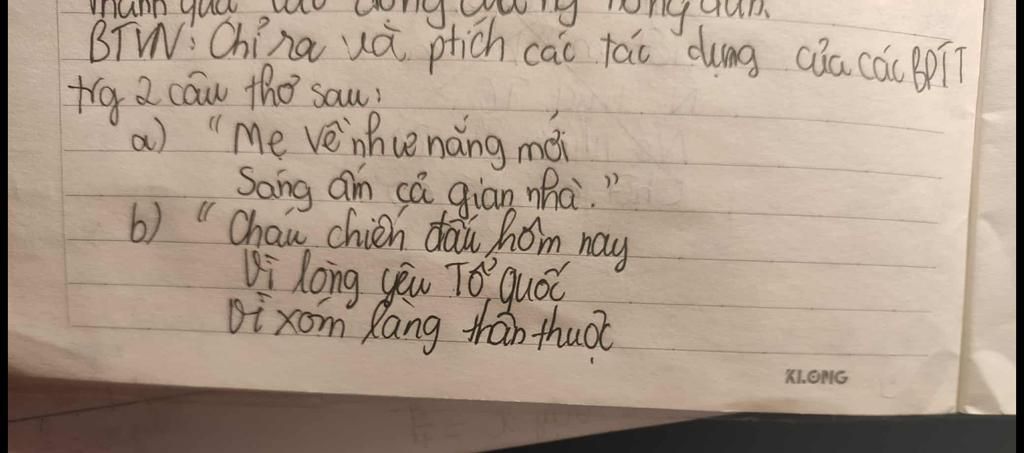 thành quả lao động của ng nông dân.
BTVN: Chỉ ra và ptích các tác dụng của các BPTT
trg 2 câu thơ sau:
a) "Mẹ về như nắng mới
Sáng ấm cả gian nhà."
b) "Cháu chiến đấu hôm nay
Vì lòng yêu Tổ quốc
Vì xóm làng thân thuộc
KLONG